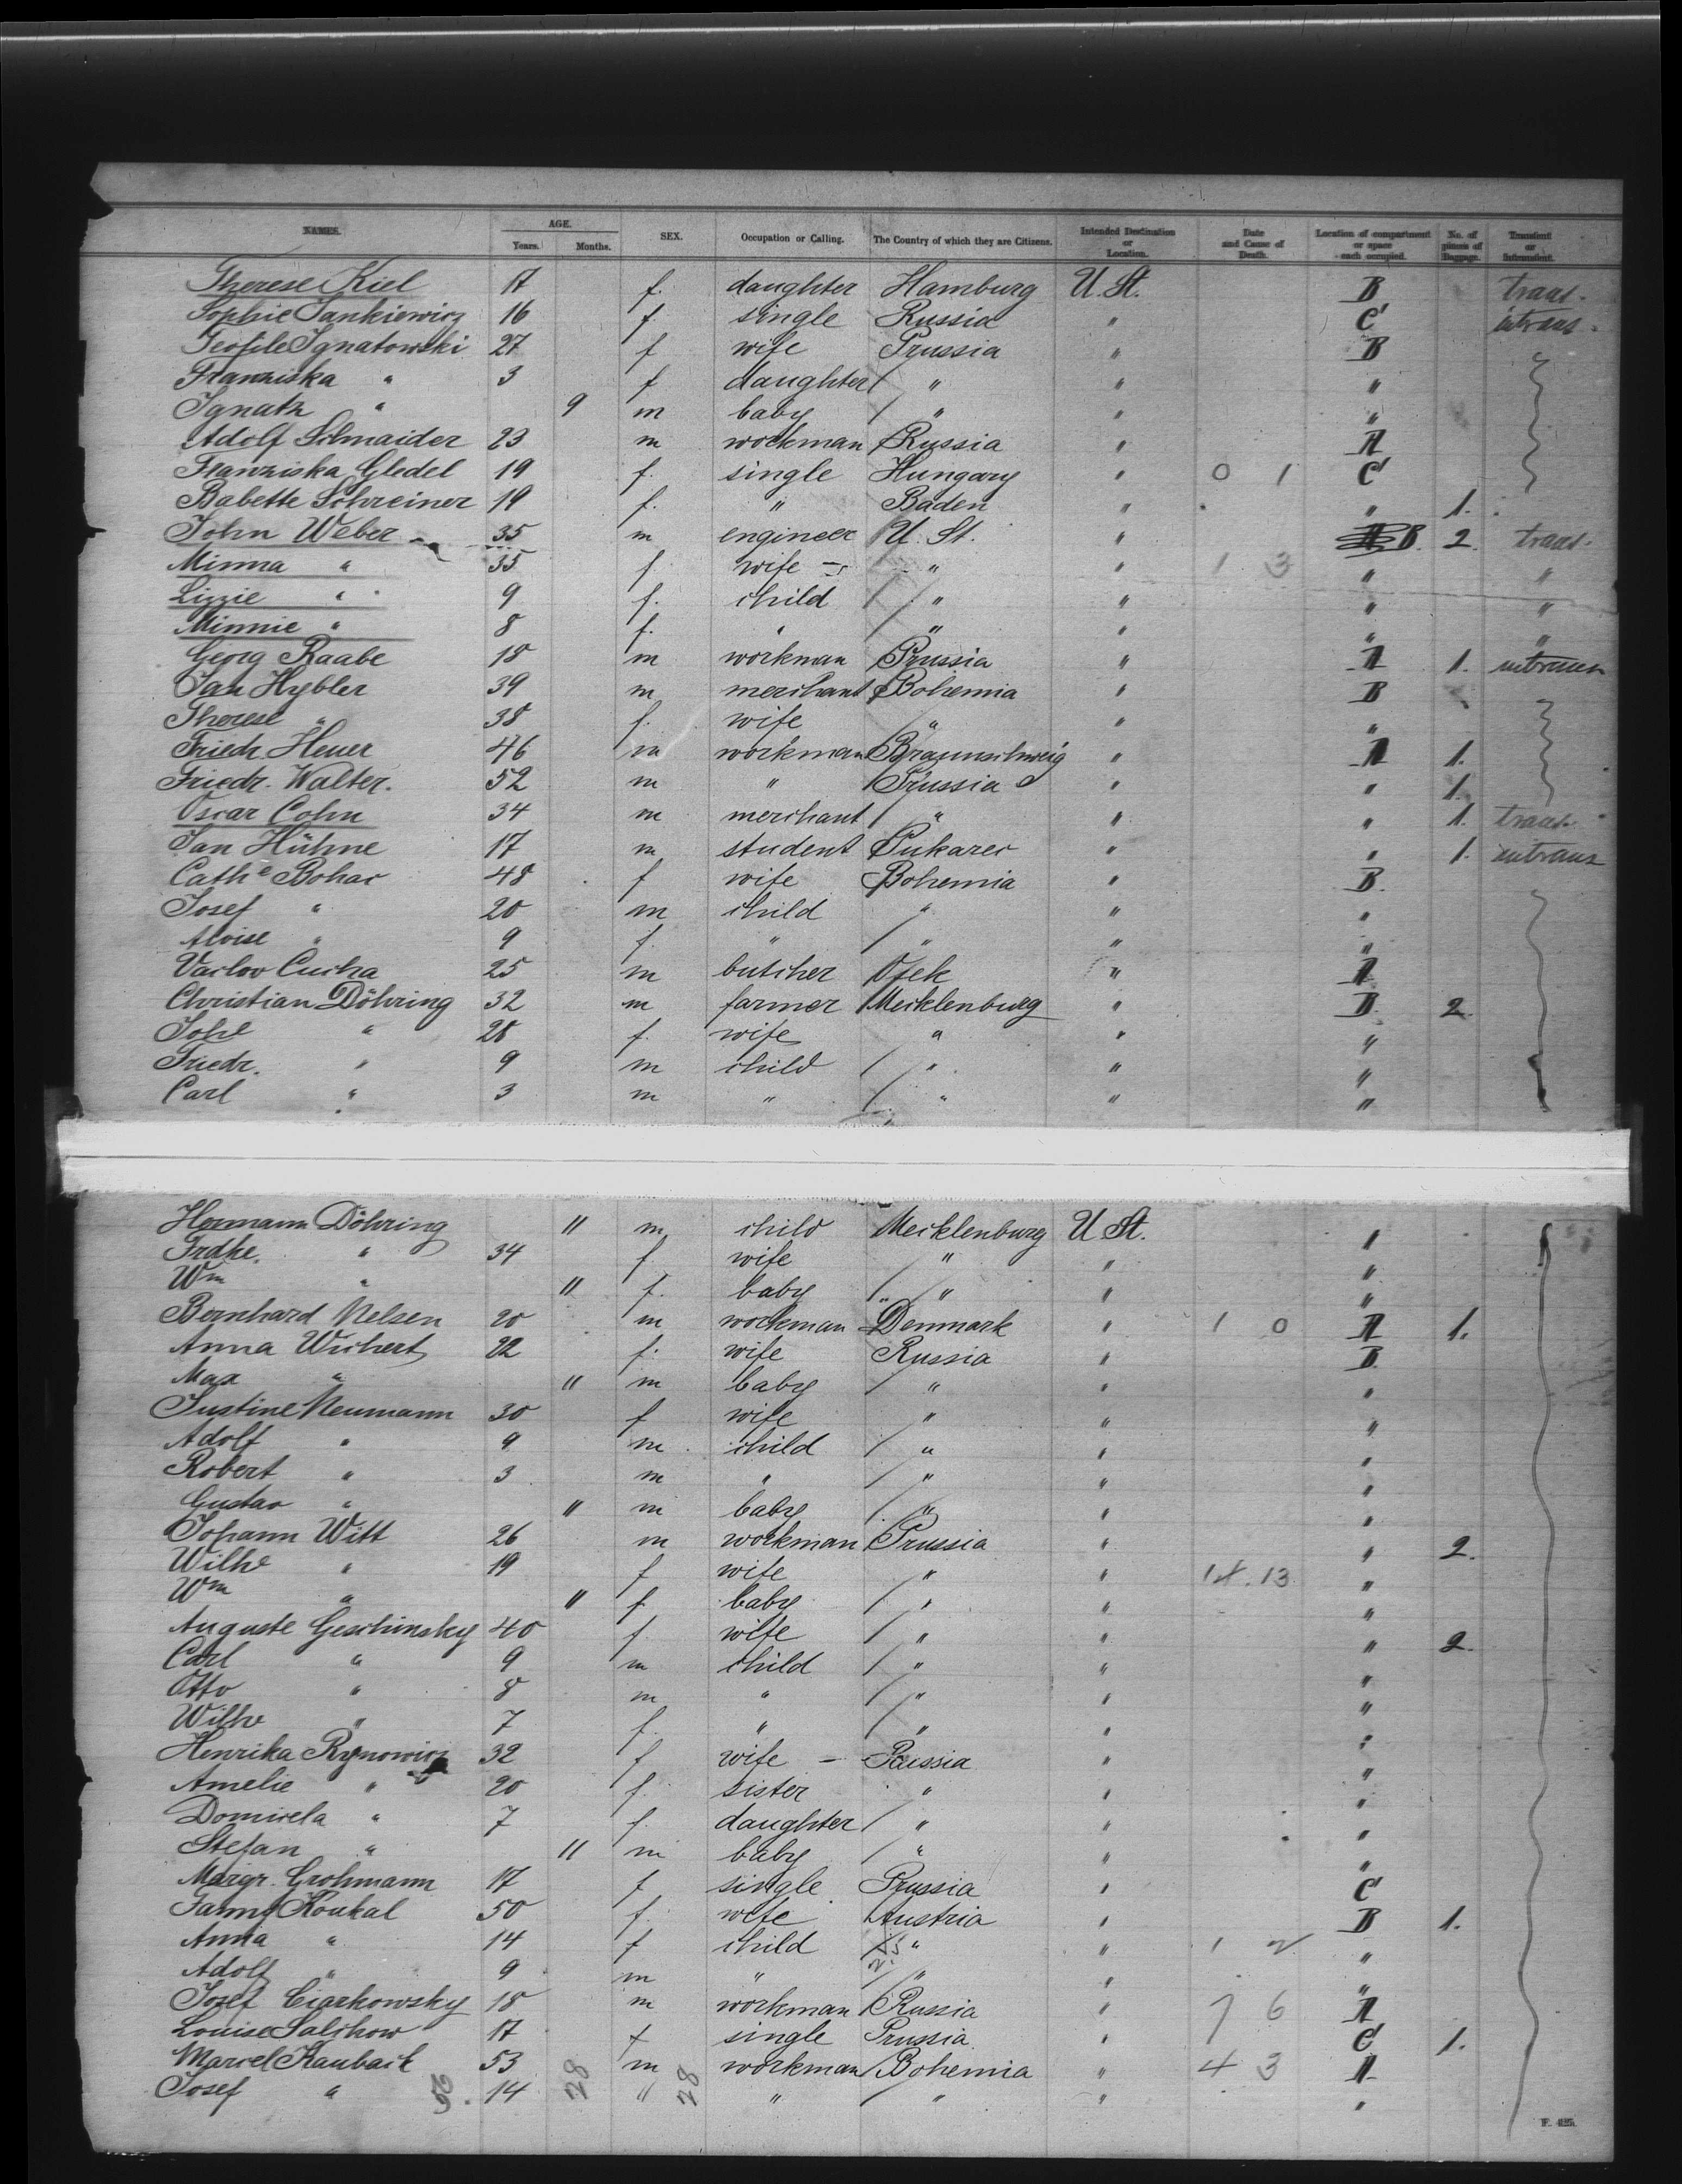 NAMES. AGE. Years. Months. SEX. Occupation or Calling. The Country of which they are Citizens. Intended Destination or Location. Date and Cause of Death. Location of compartment or space each occupied. No. of pieces of Baggage. Transient or Intransient.
Therese Kiel 17 f. daughter Hamburg U. St. B trans.
Sophie Jankiewicz 16 f. single Russia " C intrans.
Teofile Ignatowski 27 f wife Prussia " B
Franziska " 3 f daughter " " "
Ignatz " 9 m baby " " "
Adolf Schnaider 23 m workman Russia " A
Franziska Gledel 19 f. single Hungary " 0 1 C
Babette Schreiner 19 f. " Baden " " 1.
John Weber 35 m engineer U. St. " B. 2. trans.
Minna " 35 f wife " " 1 3 " "
Lizzie " 9 f. child " " " "
Minnie " 8 f. " " " " "
Georg Raabe 18 m workman Prussia " A 1. intrans
Jan Hybler 39 m merchant Bohemia " B
Therese " 38 f. wife " " "
Friedr. Heuer 46 m workman Braunschweig " A 1.
Friedr. Walter. 52 m " Prussia " " 1.
Oscar Cohn 34 m merchant " " " 1. trans.
Jan Hühne 17 m student Pukarec " " 1. intrans
Cathe Bohac 48 f wife Bohemia " B.
Josef " 20 m child " " "
Aloise " 9 f. " " " "
Vaclov Cucha 25 m butcher Osek " A
Christian Döhring 32 m farmer Mecklenburg " B. 2.
Johe " 28 f. wife " " "
Friedr. " 9 m child " " "
Carl " 3 m " " " "
Hermann Döhring 11 m child Mecklenburg U St. "
Frdke. " 34 f wife " " "
Wm " 11 f. baby " " "
Bernhard Nelsen 20 m workman Denmark " 1 0 A 1.
Anna Wichert 22 f. wife Russia " B.
Max " 11 m baby " " "
Justine Neumann 30 f wife " " "
Adolf " 9 m child " " "
Robert " 3 m " " " "
Gustav " 11 m baby " " "
Johann Witt 26 m workman Prussia " " 2.
Wilhe " 19 f wife " " 14.13 "
Wm " 11 f. baby " " "
Auguste Geschinsky 40 f. wife " " " 2.
Carl " 9 m child " " "
Otto " 8 m " " " "
Wilhe " 7 f. " " " "
Henrika Rynowicz 32 f wife – Russia " "
Amelie " 20 f. sister " " "
Domicela " 7 f. daughter " " "
Stefan " 11 m baby " " "
Margr. Grohmann 17 f single Prussia " C
Fanny Koukal 50 f. wife Austria " B 1.
Anna " 14 f child " " 1 2 "
Adolf " 9 m " " " "
Josef Ciarkowsky 18 m workman Russia " 7 6 A
Louise Salchow 17 f single Prussia " C 1.
Marcel Kauback 53 m workman Bohemia " 4 3 A
Josef " 14 " " " " "
56. 28 28
F. 425.